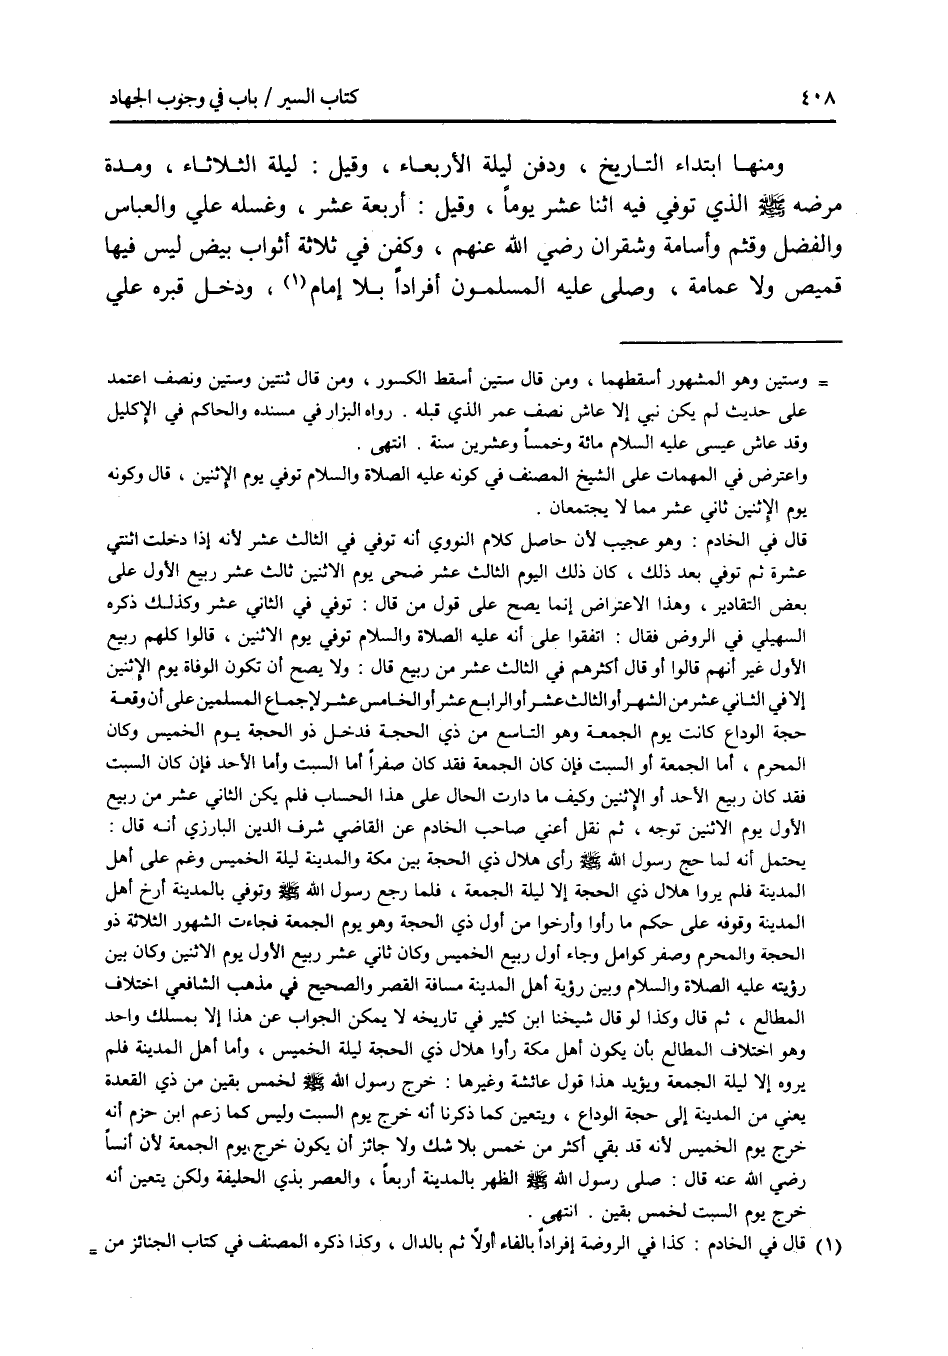 ٤٠٨
كتاب السير / باب في وجوب الجهاد
ومنهـا ابتداء التـاريخ ، ودفن ليلة الأربعـاء ، وقيل : ليلة الثـلاثـاء ، ومـدة
مرضه ﷺ الذي توفي فيه اثنا عشر يوماً ، وقيل : أربعة عشر ، وغسله علي والعباس
والفضل وقثم وأسامة وشقران رضي الله عنهم ، وكفن في ثلاثة أثواب بيض ليس فيها
قميص ولا عمامة ، وصلى عليه المسلمـون أفراداً بـلا إمام(١) ، ودخـل قبره علي
= وستين وهو المشهور أسقطهما ، ومن قال ستين أسقط الكسور ، ومن قال ثنتين وستين ونصف اعتمد
على حديث لم يكن نبي إلا عاش نصف عمر الذي قبله . رواه البزار في مسنده والحاكم في الإكليل
وقد عاش عيسى عليه السلام مائة وخمساً وعشرين سنة . انتهى .
واعترض في المهمات على الشيخ المصنف في كونه عليه الصلاة والسلام توفي يوم الإثنين ، قال وكونه
يوم الإثنين ثاني عشر مما لا يجتمعان .
قال في الخادم : وهو عجيب لأن حاصل كلام النووي أنه توفي في الثالث عشر لأنه إذا دخلت اثنتي
عشرة ثم توفي بعد ذلك ، كان ذلك اليوم الثالث عشر ضحى يوم الاثنين ثالث عشر ربيع الأول على
بعض التقادير ، وهذا الاعتراض إنما يصح على قول من قال : توفي في الثاني عشر وكذلـك ذكره
السهيلي في الروض فقال : اتفقوا على أنه عليه الصلاة والسلام توفي يوم الاثنين ، قالوا كلهم ربيع
الأول غير أنهم قالوا أو قال أكثرهم في الثالث عشر من ربيع قال : ولا يصح أن تكون الوفاة يوم الإثنين
إلا في الثـاني عشر من الشهـر أو الثالث عشـر أو الرابـع عشر أو الخـامس عشـر لإجمـاع المسلمين على أن وقعـة
حجة الوداع كانت يوم الجمعـة وهو التـاسع من ذي الحجـة فدخـل ذو الحجة يـوم الخميس وكان
المحرم ، أما الجمعة أو السبت فإن كان الجمعة فقد كان صفراً أما السبت وأما الأحد فإن كان السبت
فقد كان ربيع الأحد أو الإثنين وكيف ما دارت الحال على هذا الحساب فلم يكن الثاني عشر من ربيع
الأول يوم الاثنين توجه ، ثم نقل أعني صاحب الخادم عن القاضي شرف الدين البارزي أنـه قال :
يحتمل أنه لما حج رسول الله ﷺ رأى هلال ذي الحجة بين مكة والمدينة ليلة الخميس وغم على أهل
المدينة فلم يروا هلال ذي الحجة إلا ليلة الجمعة ، فلما رجع رسول الله ﷺ وتوفي بالمدينة أرخ أهل
المدينة وقوفه على حكم ما رأوا وأرخوا من أول ذي الحجة وهو يوم الجمعة فجاءت الشهور الثلاثة ذو
الحجة والمحرم وصفر كوامل وجاء أول ربيع الخميس وكان ثاني عشر ربيع الأول يوم الاثنين وكان بين
رؤيته عليه الصلاة والسلام وبين رؤية أهل المدينة مسافة القصر والصحيح في مذهب الشافعي اختلاف
المطالع ، ثم قال وكذا لو قال شيخنا ابن كثير في تاريخه لا يمكن الجواب عن هذا إلا بمسلك واحد
وهو اختلاف المطالع بأن يكون أهل مكة رأوا هلال ذي الحجة ليلة الخميس ، وأما أهل المدينة فلم
يروه إلا ليلة الجمعة ويؤيد هذا قول عائشة وغيرها : خرج رسول الله ﷺ لخمس بقين من ذي القعدة
يعني من المدينة إلى حجة الوداع ، ويتعين كما ذكرنا أنه خرج يوم السبت وليس كما زعم ابن حزم أنه
خرج يوم الخميس لأنه قد بقي أكثر من خمس بلا شك ولا جائز أن يكون خرج يوم الجمعة لأن أنساً
رضي الله عنه قال : صلى رسول الله ﷺ الظهر بالمدينة أربعاً ، والعصر بذي الحليفة ولكن يتعين أنه
خرج يوم السبت لخمس بقين . انتهى .
(١) قال في الخادم : كذا في الروضة إفراداً بالفاء أولاً ثم بالدال ، وكذا ذكره المصنف في كتاب الجنائز من =